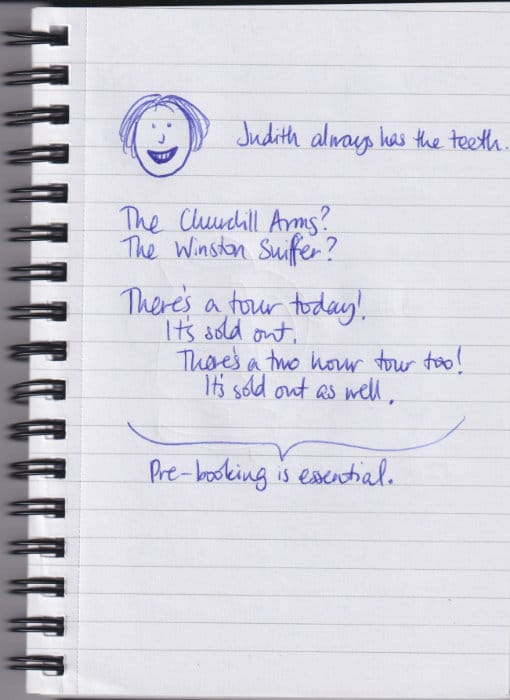 Judith always has the teeth.
The Churchill Arms?
The Winston Sniffer?
There's a tour today!
It's sold out.
There's a two hour tour too!
It's sold out as well.
Pre-booking is essential.